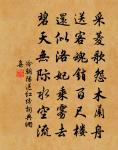 采菱歌怨木蘭舟
送客魂銷百尺樓
還似洛妃乘霧去
碧天無際水空流
冷朝陽送紅線詩